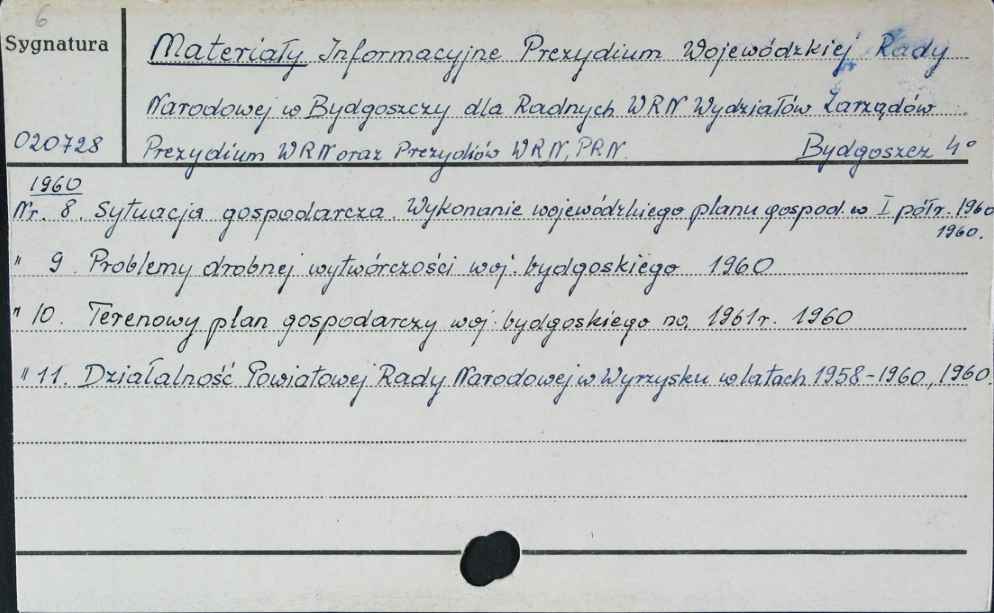 6
Sygnatura
020728
Materiały Informacyjne Prezydium Wojewódzkiej Rady
Narodowej w Bydgoszczy dla Radnych WRN Wydziałów Zarządów
Prezydium WRN oraz Prezydiów WRN, PRN. Bydgoszcz 4°
1960
Nr. 8. Sytuacja gospodarcza Wykonanie wojewódzkiego planu gospod. w I półr. 1960
1960.
" 9. Problemy drobnej wytwórczości woj. bydgoskiego 1960
" 10. Terenowy plan gospodarczy woj. bydgoskiego na 1961r. 1960
" 11. Działalność Powiatowej Rady Narodowej w Wyrzysku w latach 1958-1960, 1960.